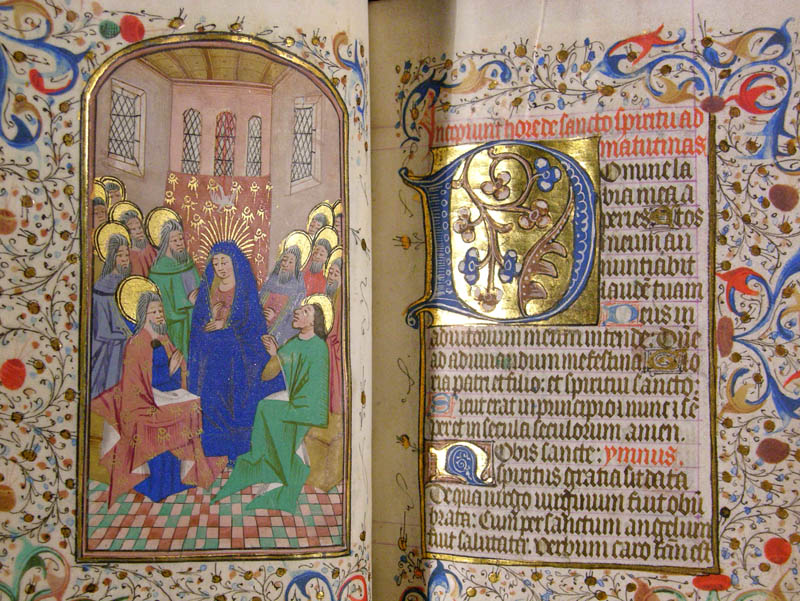 Incipiunt hore de sancto spiritu ad
matutinas
Domine la
bia mea a
peries Et os
meum an
nuntiabit
laudem tuam
Deus in
adiutorium meum intende: Dne
ad adiuuandum me festina Glo
ria patri et filio: et spiritui sancto:
Sicut erat in principio et nunc et sē
per et in secula seculorum amen.
Nobis sancte: ymnus.
spiritus gratia sit data
De qua uirgo uirginum fuit obū
brata: Cum per sanctum angelum
fuit salutata: Verbum caro fcm est